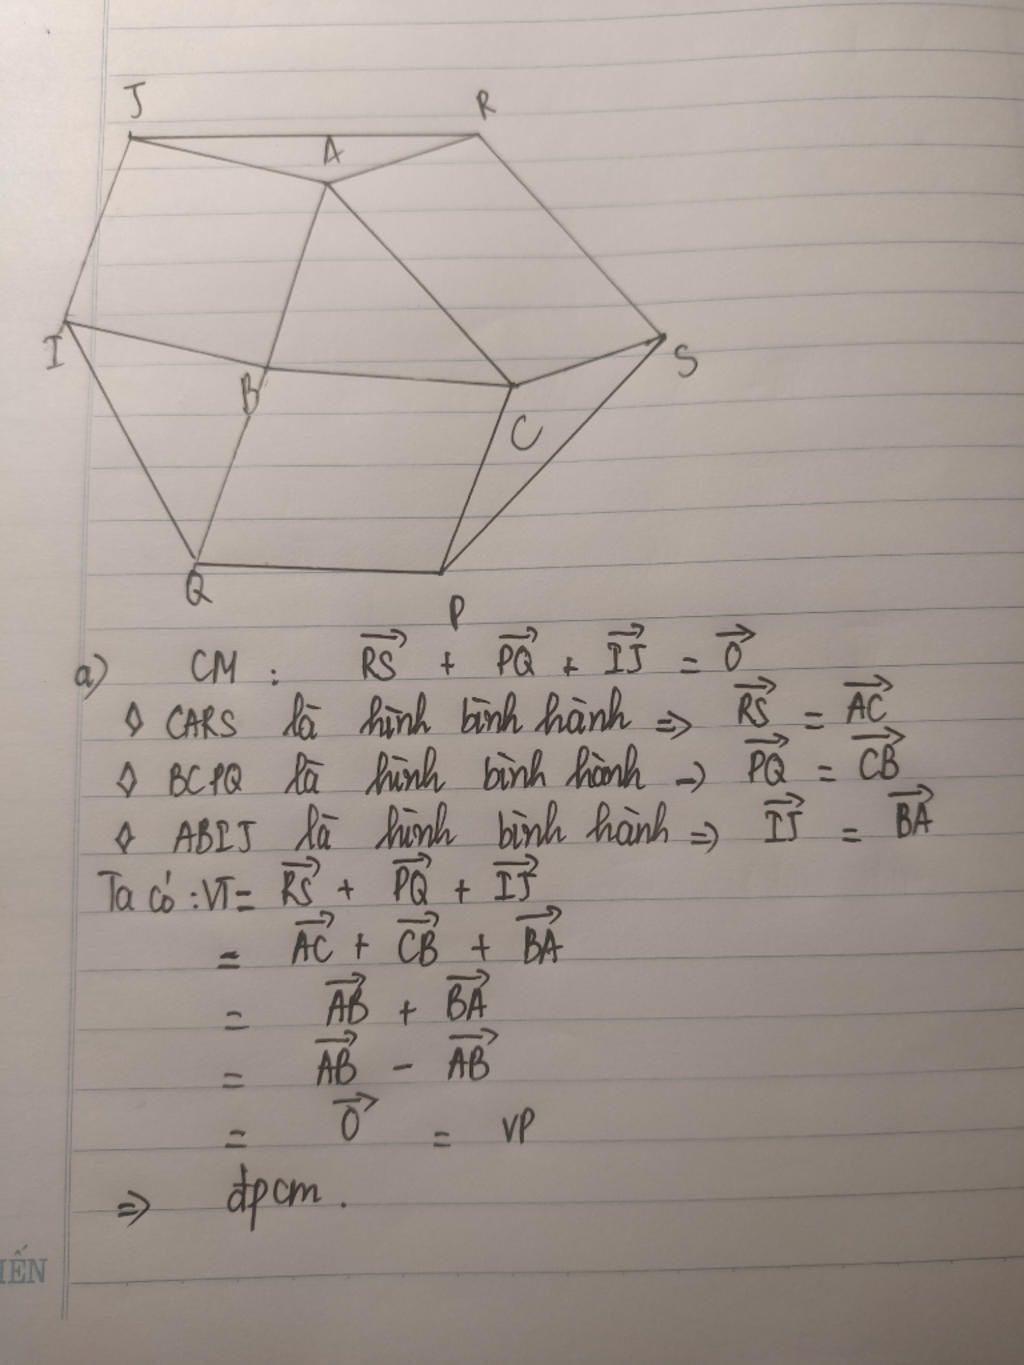 J
R
A
I
S
B
C
Q
P
a) CM : $\overrightarrow{RS}$ + $\overrightarrow{PQ}$ + $\overrightarrow{IJ}$ = $\overrightarrow{0}$
◊ CARS là hình bình hành => $\overrightarrow{RS}$ = $\overrightarrow{AC}$
◊ BCPQ là hình bình hành -> $\overrightarrow{PQ}$ = $\overrightarrow{CB}$
◊ ABIJ là hình bình hành => $\overrightarrow{IJ}$ = $\overrightarrow{BA}$
Ta có : VT = $\overrightarrow{RS}$ + $\overrightarrow{PQ}$ + $\overrightarrow{IJ}$
= $\overrightarrow{AC}$ + $\overrightarrow{CB}$ + $\overrightarrow{BA}$
= $\overrightarrow{AB}$ + $\overrightarrow{BA}$
= $\overrightarrow{AB}$ - $\overrightarrow{AB}$
= $\overrightarrow{0}$ = VP
=> đpcm .
IẾN